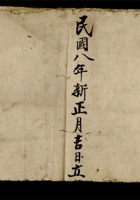 民國八年新正月吉日立